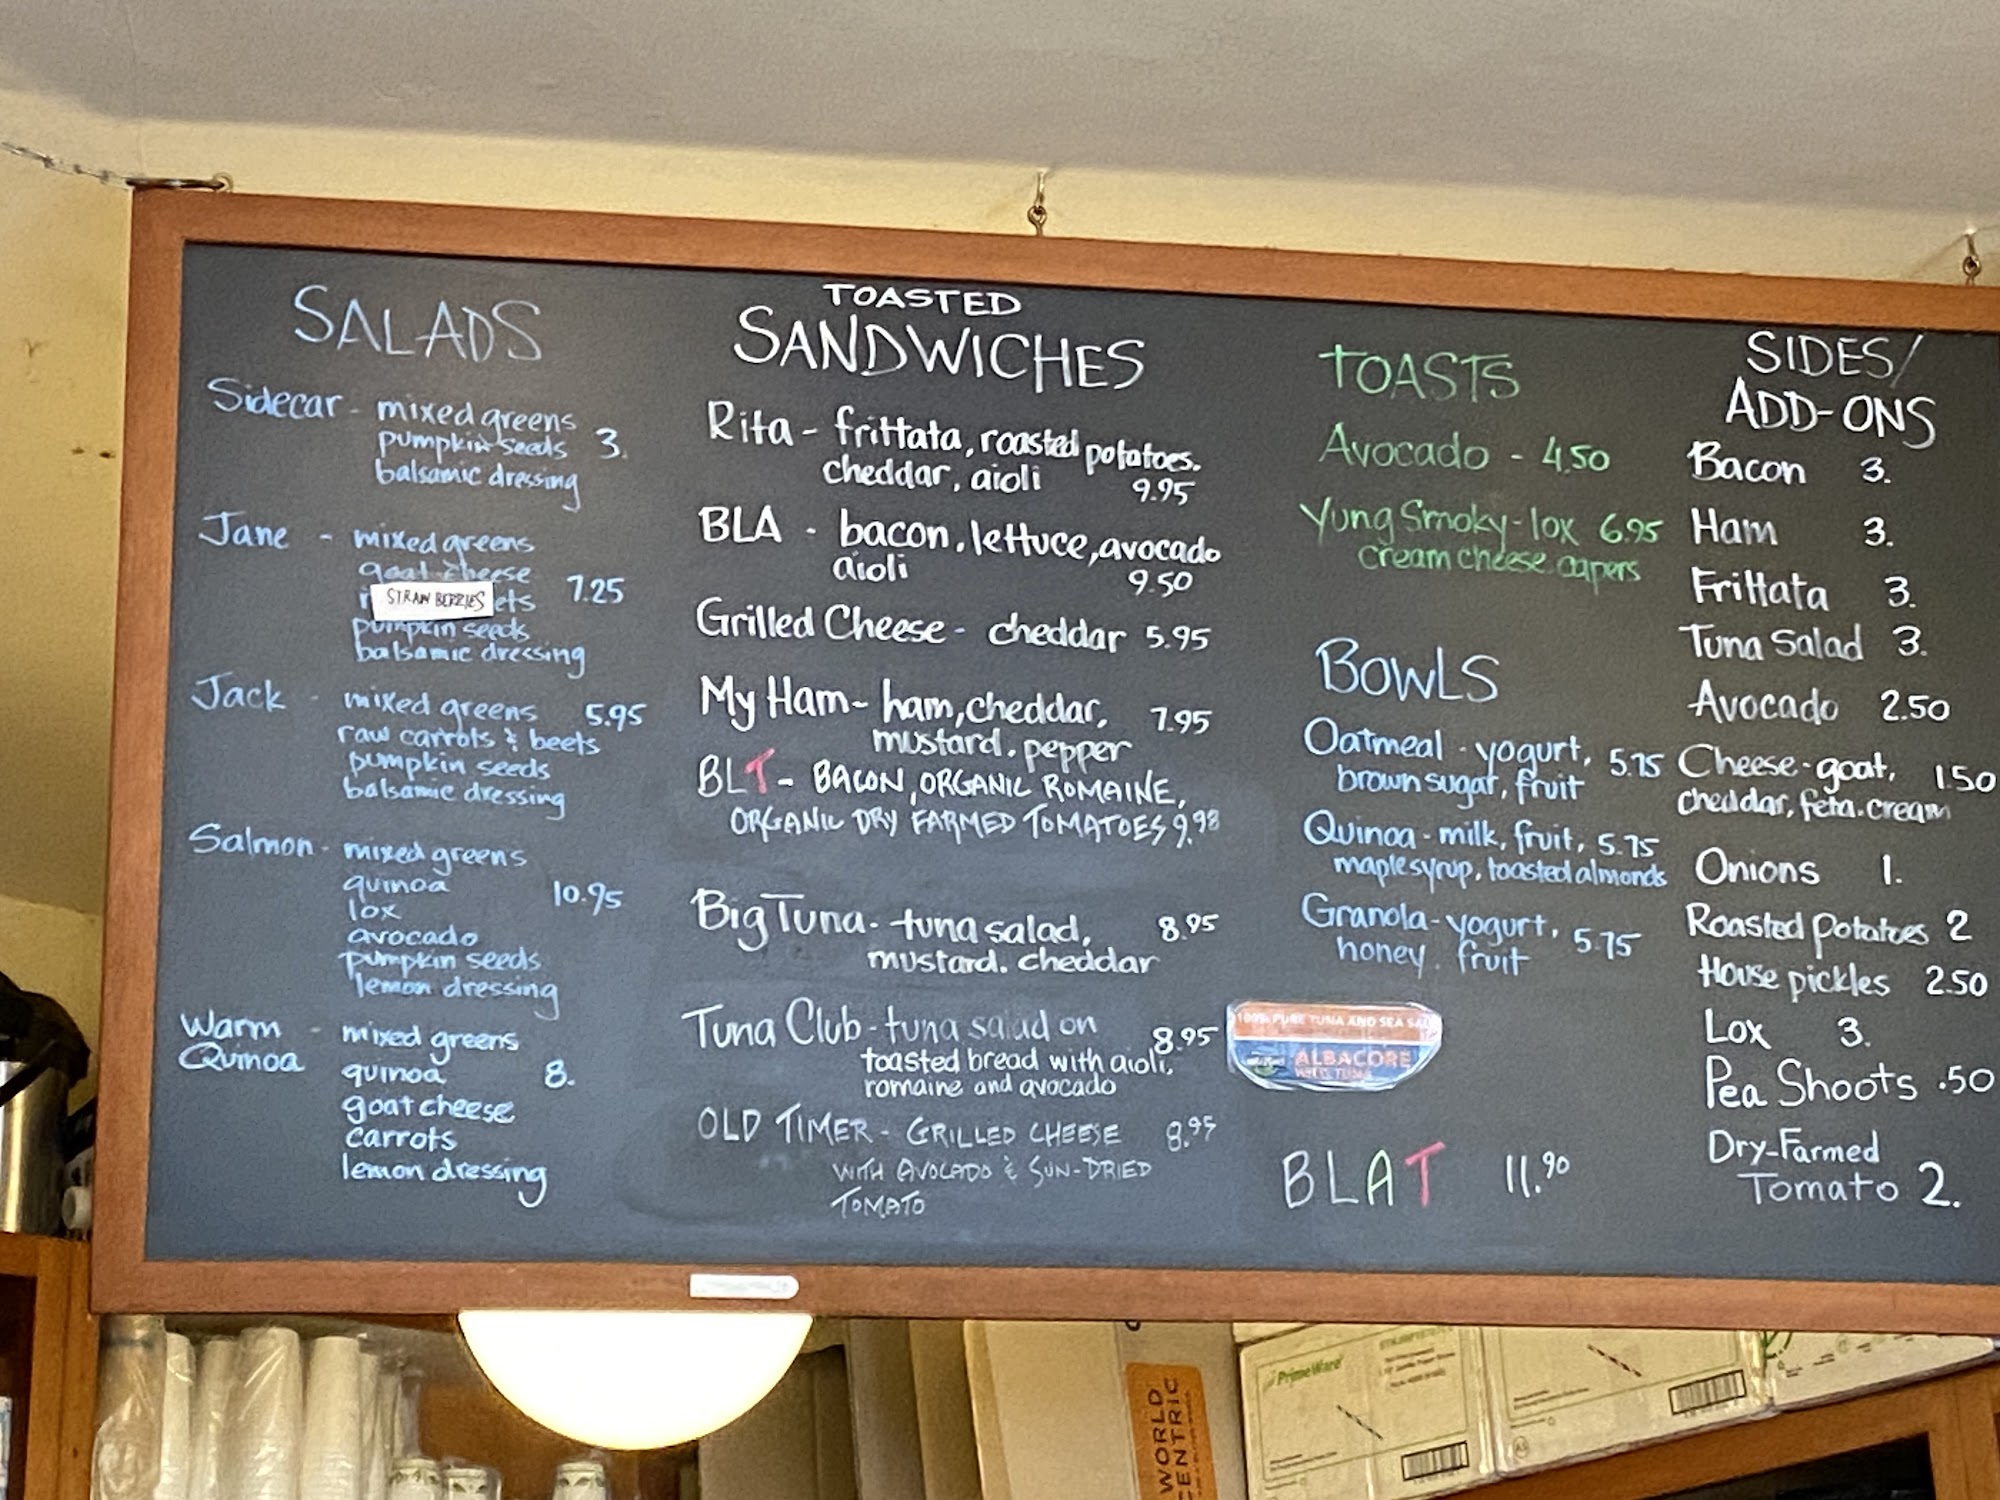 SALADS
Sidecar - mixed greens
pumpkin seeds 3.
balsamic dressing
Jane - mixed greens
goat cheese
STRAWBERRIES 7.25
pumpkin seeds
balsamic dressing
Jack - mixed greens 5.95
raw carrots & beets
pumpkin seeds
balsamic dressing
Salmon - mixed greens
quinoa 10.95
lox
avocado
pumpkin seeds
lemon dressing
Warm - mixed greens
Quinoa quinoa 8.
goat cheese
carrots
lemon dressing
TOASTED
SANDWICHES
Rita - frittata, roasted potatoes.
cheddar, aioli 9.95
BLA - bacon, lettuce, avocado
aioli 9.50
Grilled Cheese - cheddar 5.95
My Ham - ham, cheddar, 7.95
mustard, pepper
BLT - BACON, ORGANIC ROMAINE,
ORGANIC DRY FARMED TOMATOES 9.98
Big Tuna - tuna salad, 8.95
mustard. cheddar
Tuna Club - tuna salad on 8.95
toasted bread with aioli,
romaine and avocado
OLD TIMER - GRILLED CHEESE 8.95
WITH AVOCADO & SUN-DRIED
TOMATO
TOASTS
Avocado - 4.50
Yung Smoky - lox 6.95
cream cheese. capers
BOWLS
Oatmeal - yogurt, 5.75
brown sugar, fruit
Quinoa - milk, fruit, 5.75
maple syrup, toasted almonds
Granola - yogurt, 5.75
honey. fruit
100% PURE TUNA AND SEA SALT
ALBACORE
WILD TUNA
BLAT 11.90
SIDES/
ADD-ONS
Bacon 3.
Ham 3.
Frittata 3.
Tuna Salad 3.
Avocado 2.50
Cheese - goat, 1.50
cheddar, feta. cream
Onions 1.
Roasted potatoes 2
House pickles 2.50
Lox 3.
Pea Shoots .50
Dry-Farmed
Tomato 2.
WORLD
CENTRIC
PrimeWare